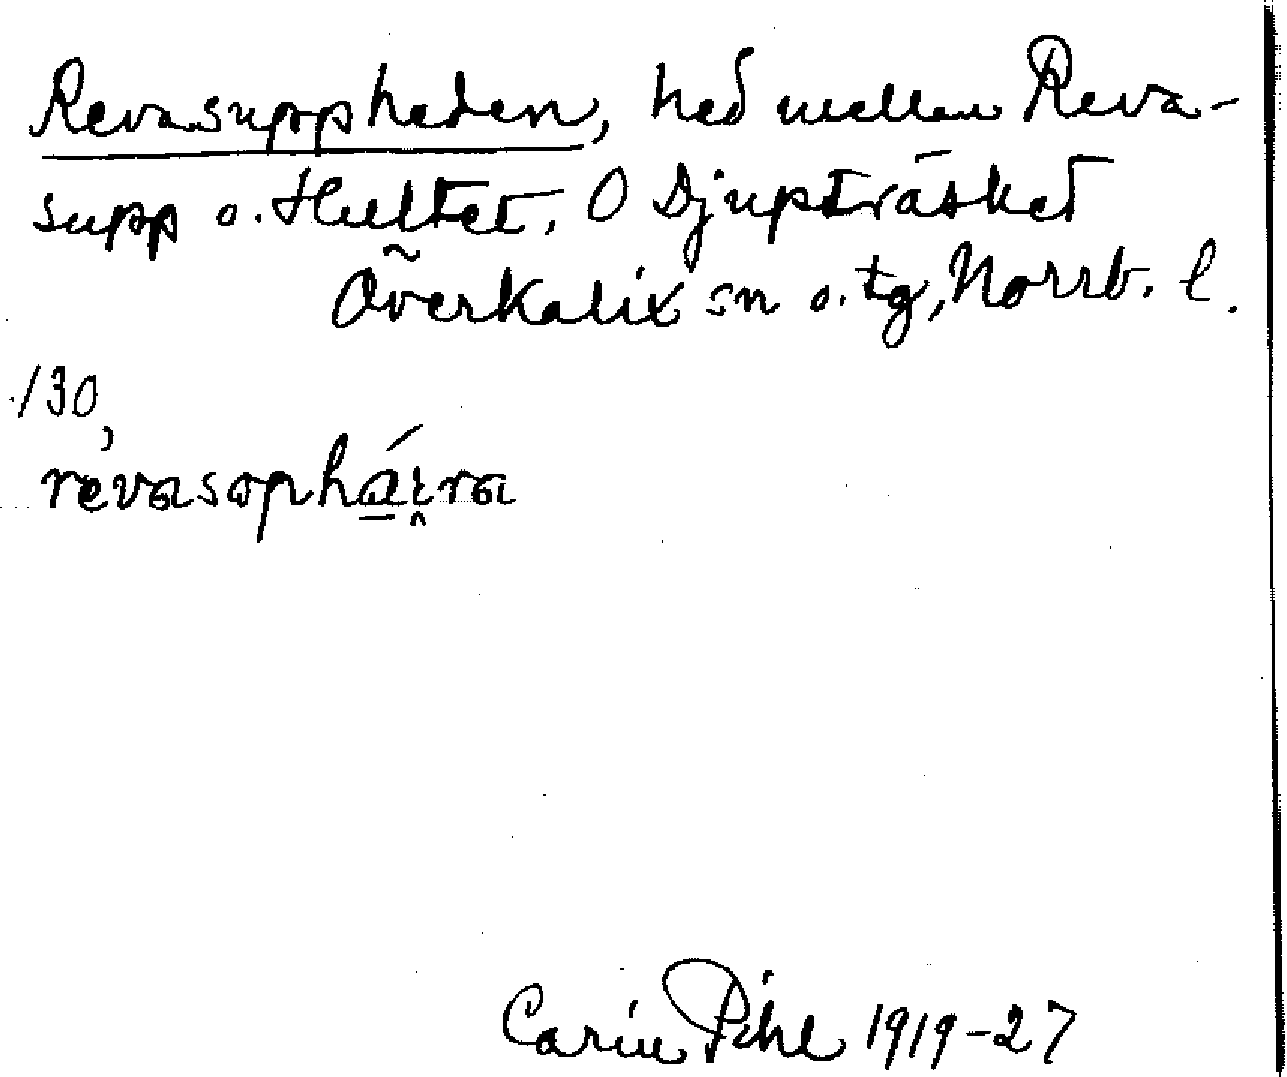 Revasuppheden, hed mellan Reva-
supp o. Hultet, O Djupträsket
Överkalix sn o. tg, Norrb. l.
/30,
révasophái̯ra
Carin Pihl 1919-27